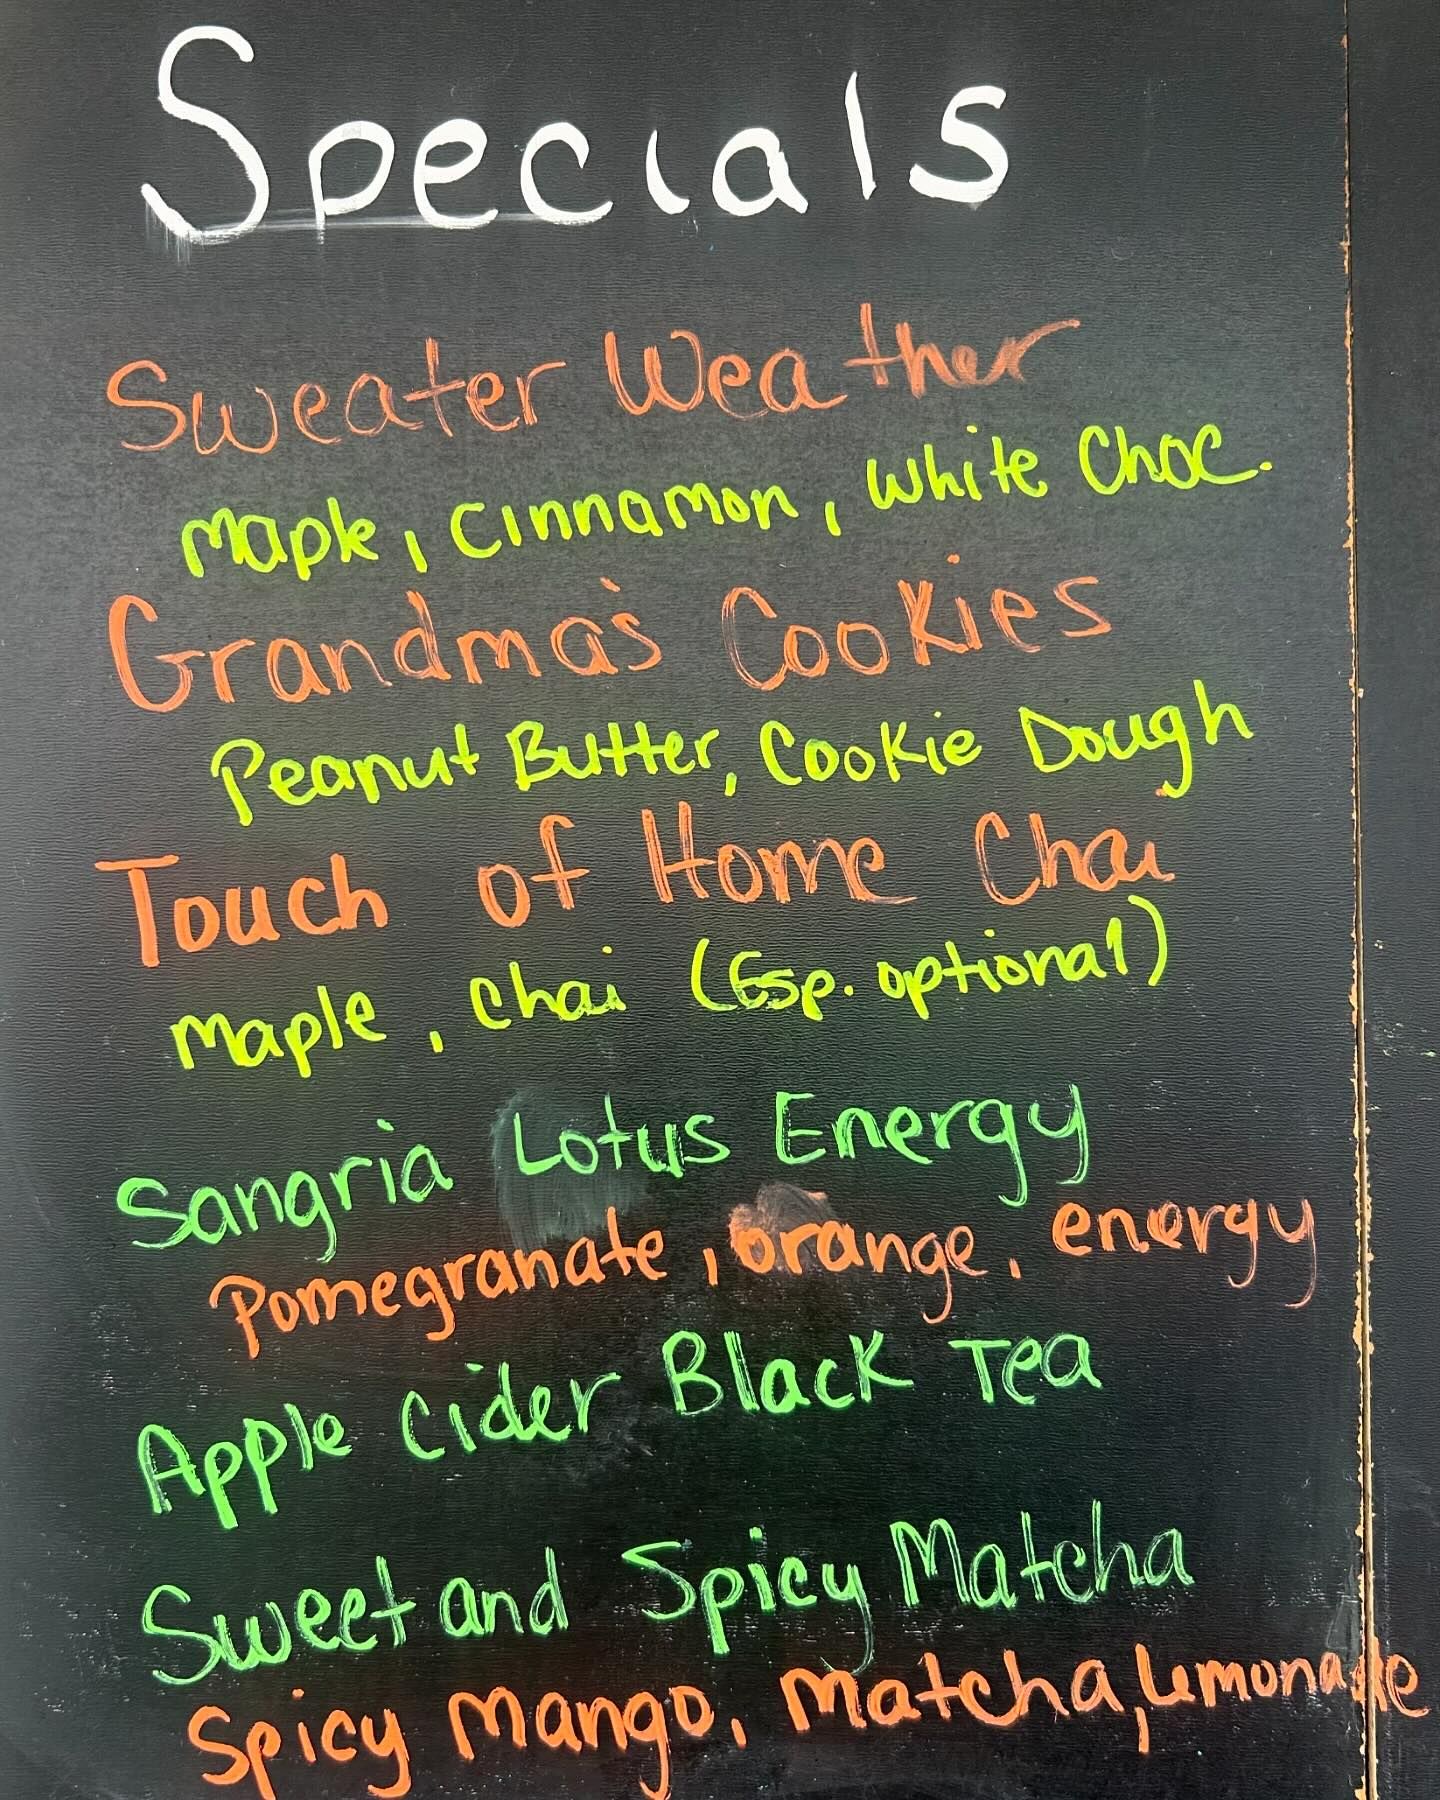 Specials
Sweater Weather
Maple, Cinnamon, White Choc.
Grandma's Cookies
Peanut Butter, Cookie Dough
Touch of Home Chai
Maple, Chai (Esp. optional)
Sangria Lotus Energy
Pomegranate, orange, energy
Apple Cider Black Tea
Sweet and Spicy Matcha
Spicy Mango, Matcha, Lemonade